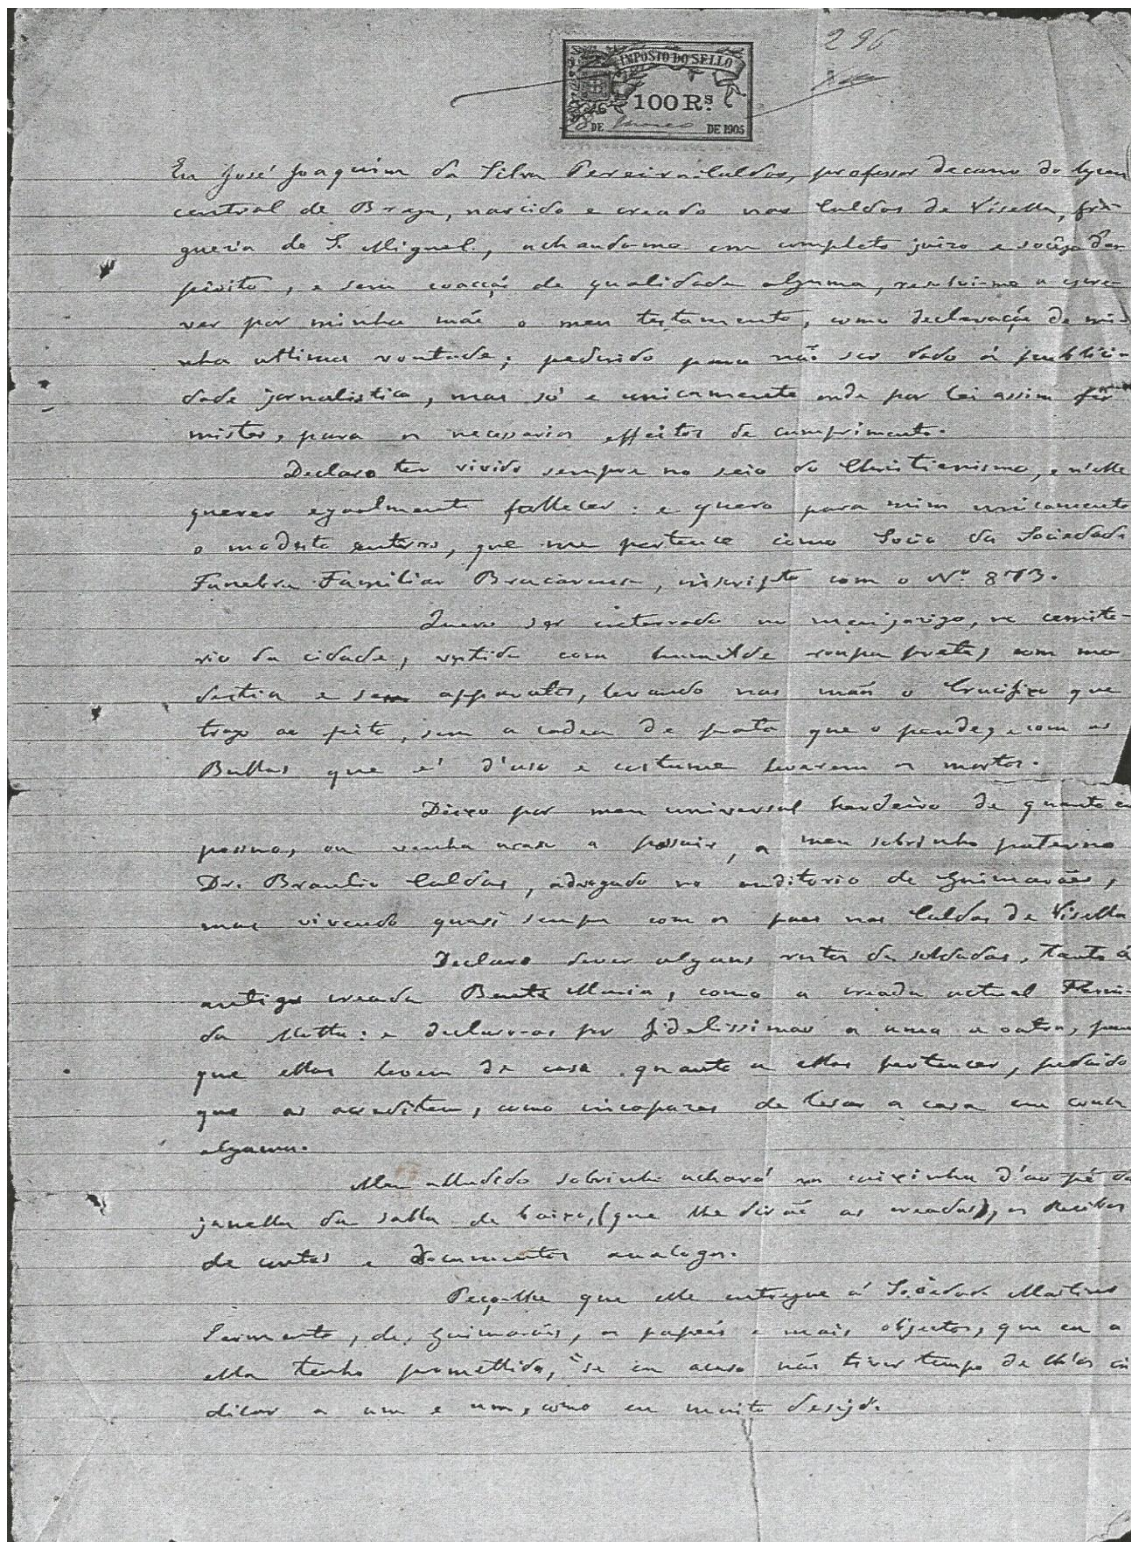 296
IMPOSTO DO SELLO
100 Rs.
8 DE Março DE 1905
Eu José Joaquim da Silva Pereira Caldas, professor decano do lyceu
central de Braga, nascido e creado nas Caldas de Visella, fre-
guezia de S. Miguel, achando-me em completo juizo e socêgo d'es-
pirito, e sem coacção de qualidade alguma, resolvi-me a escre-
ver por minha mão o meu testamento, como declaração de mi-
nha ultima vontade; pedindo para não ser dado á publici-
dade jornalistica, mas só e unicamente onde por lei assim fôr
mister, para os necessarios effeitos de cumprimento.
Declaro ter vivido sempre no seio do Christianismo, e n'elle
querer egualmente fallecer: e quero para mim unicamente
o modesto enterro, que me pertence como Socio da Sociedade
Funebre Familiar Bracarense, inscripto com o Nº 873.
Quero ser enterrado no meu jazigo, no cemite-
rio da cidade, vestido com humilde roupa preta, com mo-
destia e sem apparatos, levando nas mãos o Crucifixo que
trago ao peito, sem a cadea de prata que o pende, e com as
Bullas que é d'uso e costume levarem os mortos.
Deixo por meu universal herdeiro de quanto eu
possuo, ou venha acaso a possuir, a meu sobrinho paterno
Dr. Braulio Caldas, advogado no auditorio de Guimarães,
mas vivendo quasi sempre com os paes nas Caldas de Visella
Declaro dever alguns restos de soldadas, tanto á
antiga creada Benta Maria, como a creada actual
da Motta: e declaro-as por fidelissimas a uma e outra, para
que ellas levem de casa quanto a ellas pertencer, pedindo
que as acreditem, como incapazes de lesar a casa em cousa
alguma.
Meu alludido sobrinho achará na caixinha d'ao pé da
janella da salla de baixo, (que lhe dirão as creadas), os Recibos
de contas e documentos analogos.
Peço-lhe que elle entregue á Sociedade Martins
Sarmento, de Guimarães, os papeis e mais objectos, que eu a
ella tenho promettido, se eu acaso não tiver tempo de lh'os in-
dicar a um e um, como eu muito desejo.